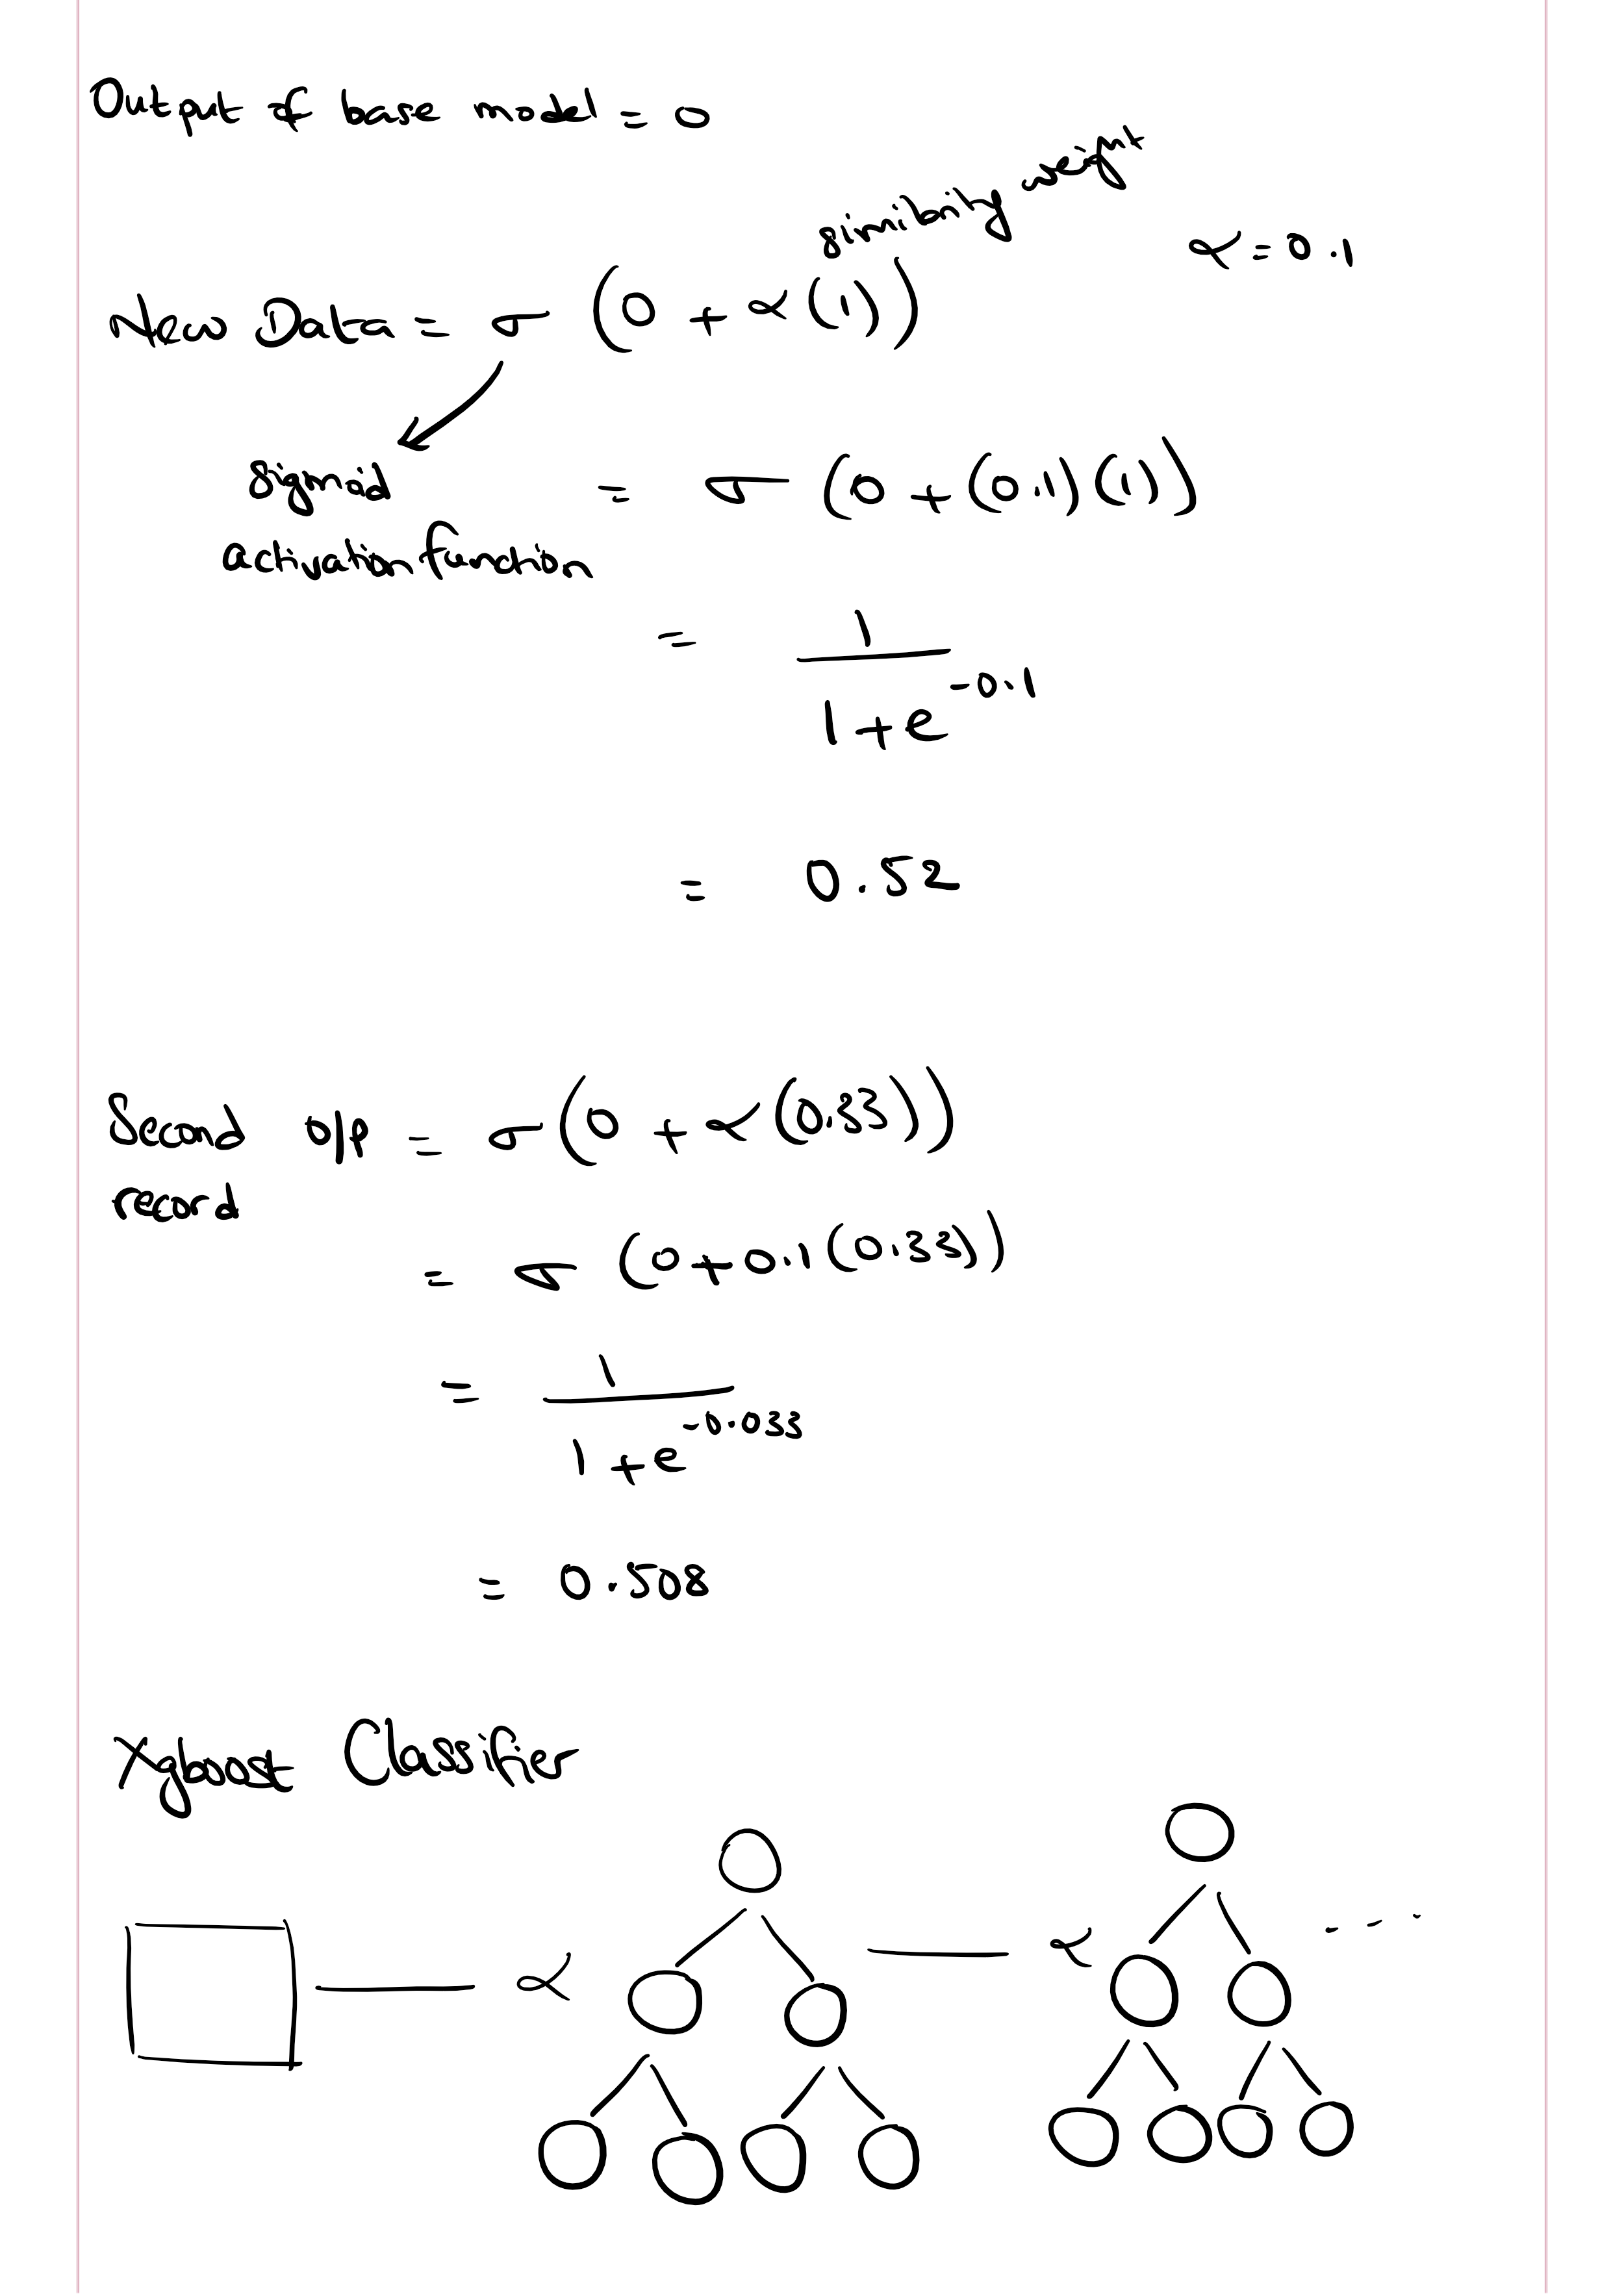 Output of base model = 0
similarity weight
α = 0.1
New Data = σ (0 + α (1))
sigmoid
activation function
= σ (0 + (0.1)(1))
= 1
1 + e^-0.1
= 0.52
Second o/p = σ (0 + α (0.33))
record
= σ (0 + 0.1 (0.33))
= 1
1 + e^-0.033
= 0.508
Xgboost Classifier
α
α - - -